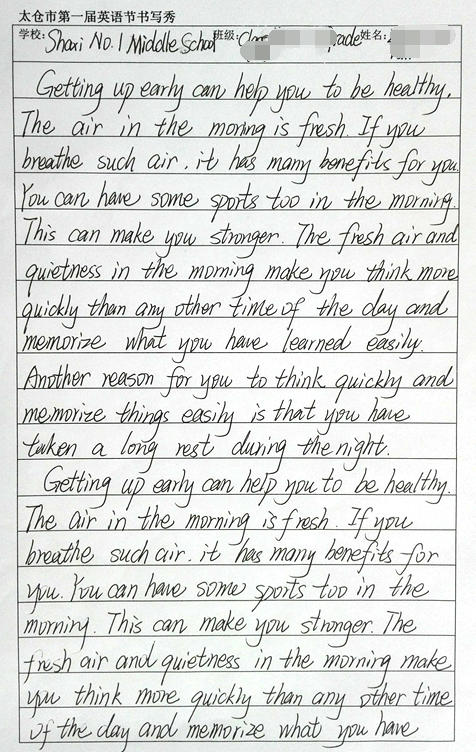 太仓市第一届英语节书写秀
学校: Shaxi No.1 Middle School 班级: Grade 姓名:
Getting up early can help you to be healthy.
The air in the moring is fresh. If you
breathe such air, it has many benefits for you.
You can have some sports too in the morning.
This can make you stronger. The fresh air and
quietness in the morning make you think more
quickly than any other time of the day and
memorize what you have learned easily.
Another reason for you to think quickly and
memorize things easily is that you have
taken a long rest during the night.
Getting up early can help you to be healthy.
The air in the morning is fresh. If you
breathe such air, it has many benefits for
you. You can have some sports too in the
morning. This can make you stronger. The
fresh air and quietness in the morning make
you think more quickly than any other time
of the day and memorize what you have